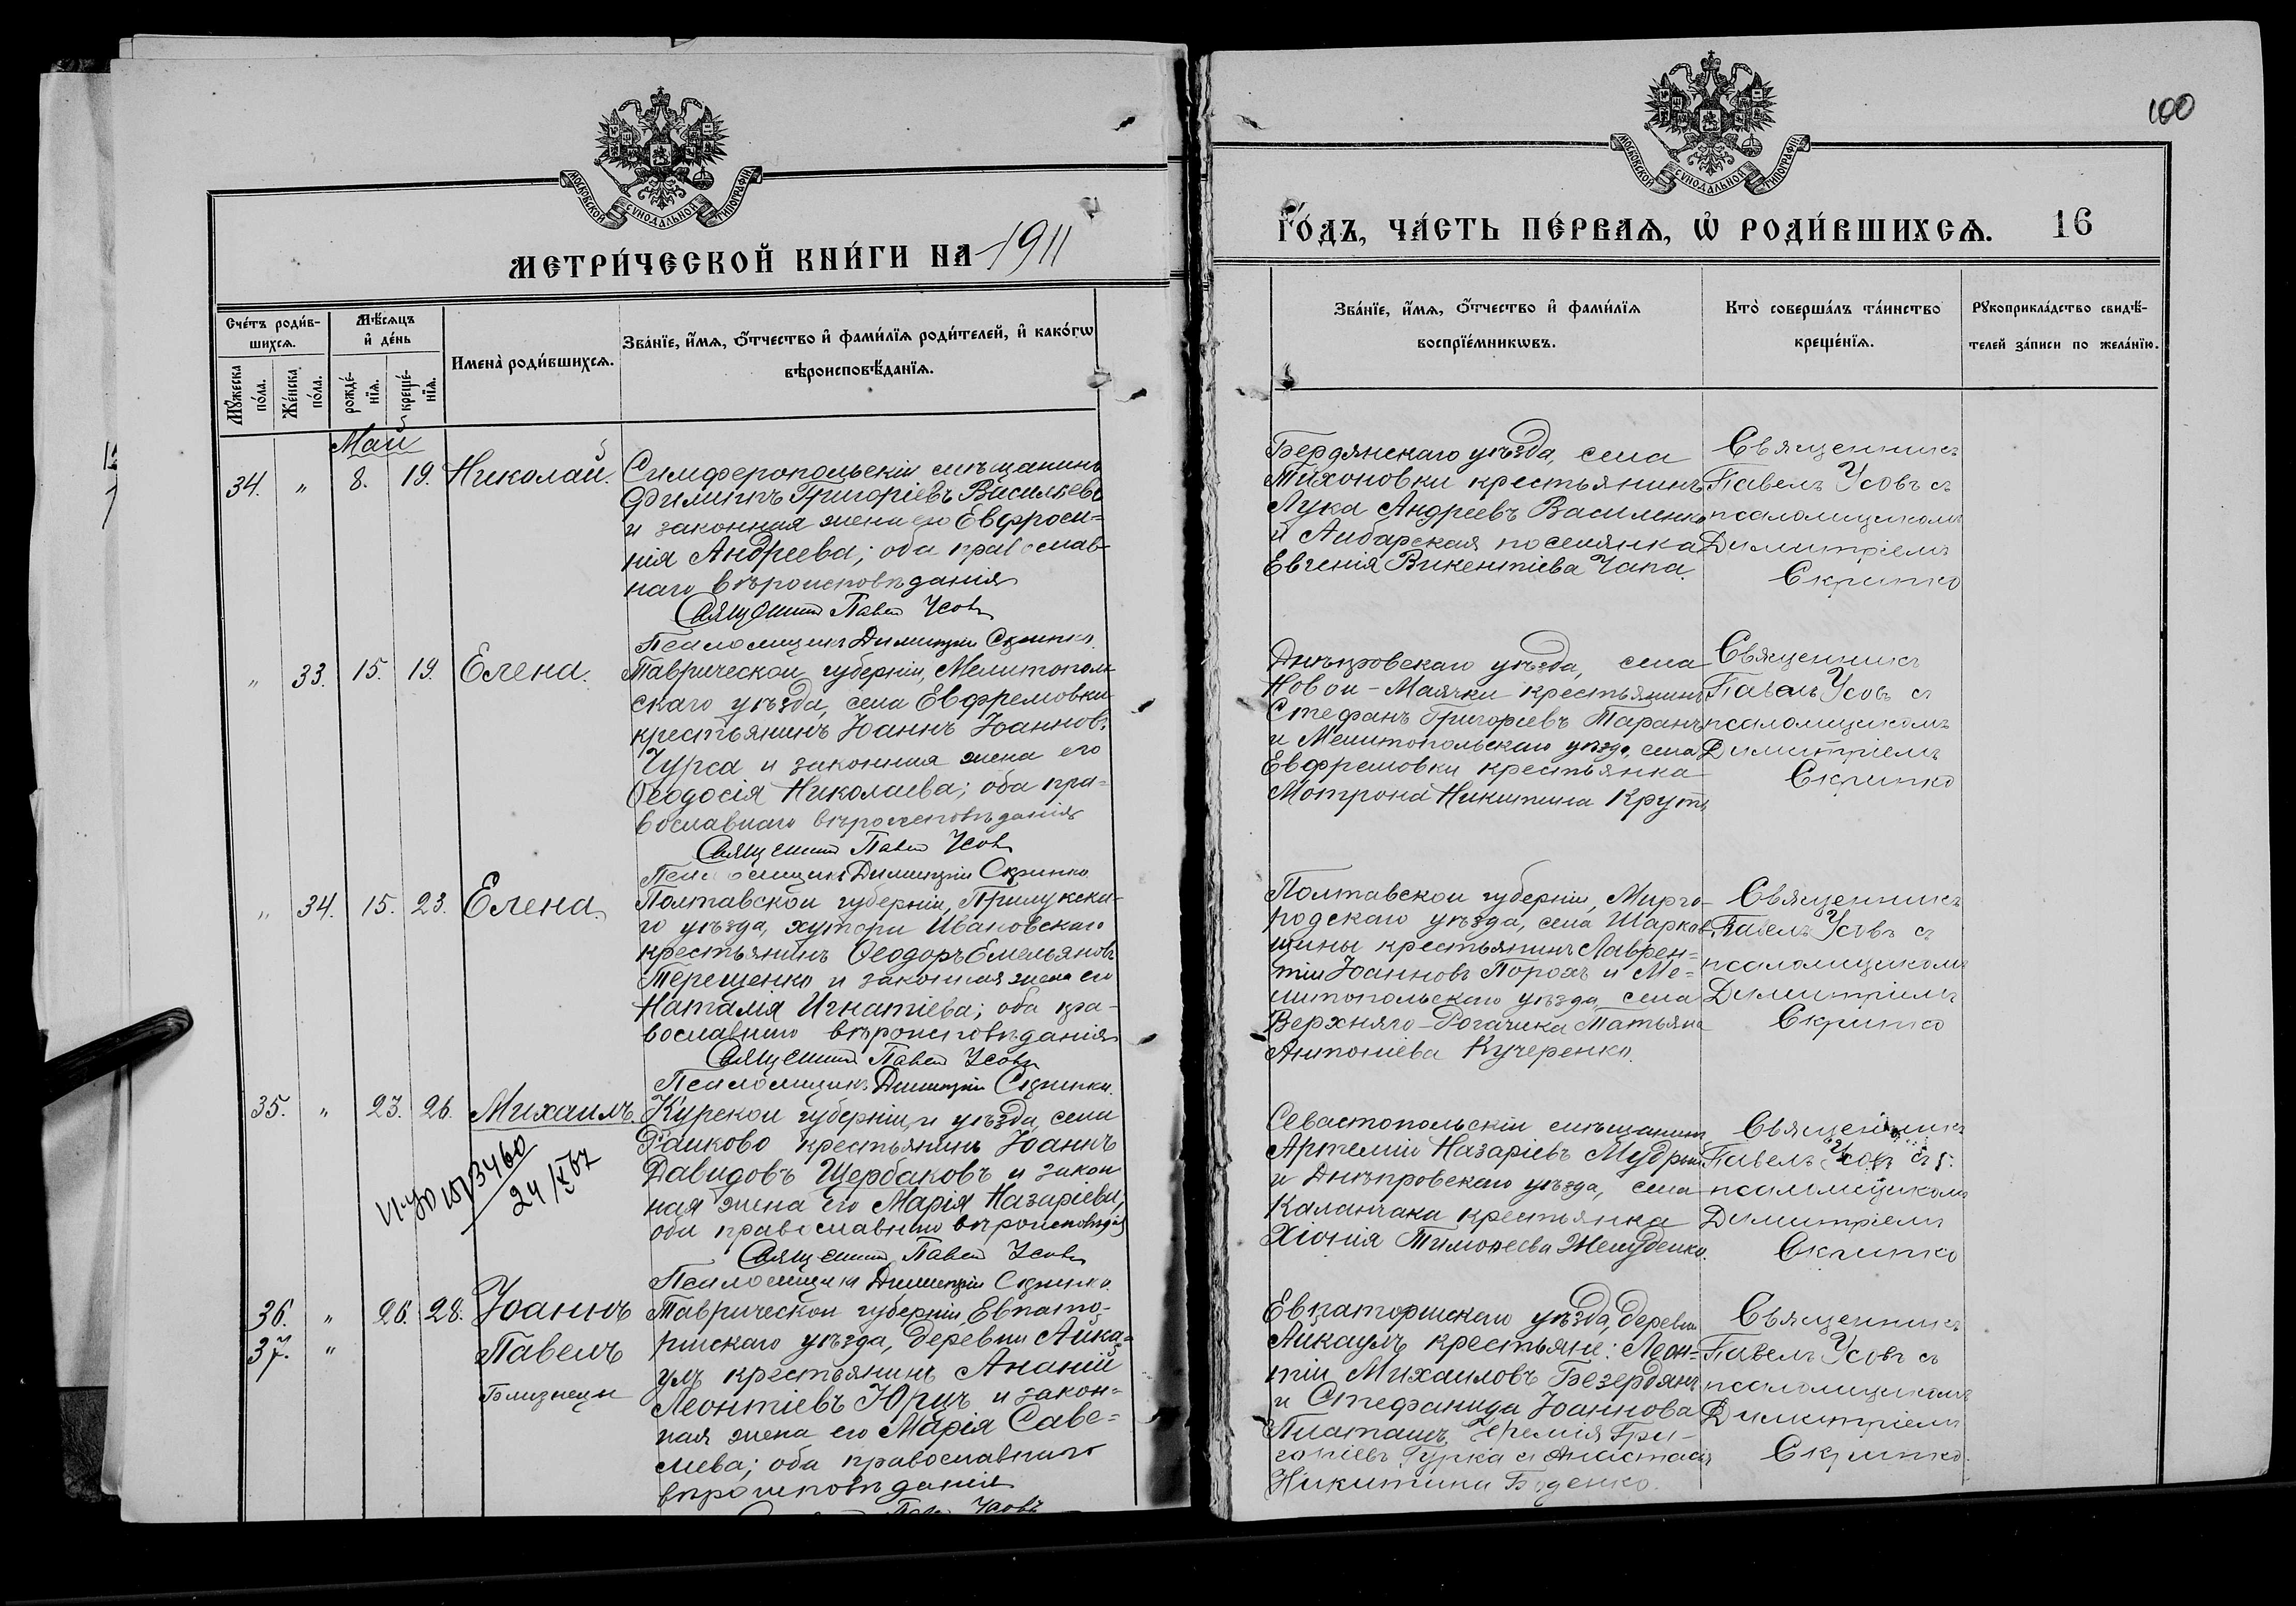 100
МОСКОВСКОЙ СУНОДАЛЬНОЙ ТИПОГРАФІИ
МЕТРИ́ЧЕСКОЙ КНИ́ГИ НА 1911
Сче́тъ роди́в-
шихсѧ.
Мѣ́сѧцъ
и҆ де́нь
Мꙋ́жеска
по́ла.
Же́нска
по́ла.
рожде́-
нїѧ.
креще́-
нїѧ.
Имена̀ роди́вшихсѧ.
Зва́нїе, и҆́мѧ, ѻ҆́тчество и҆ фами́лїѧ роди́телей, и҆ како́гѡ
вѣроисповѣ́данїѧ.
Май
34. „ 8. 19. Николай.
Симферопольскій мѣщанинъ
Филиппъ Григоріевъ Васильевъ
и законная жена его Евфроси-
нія Андреева; оба православ-
наго вѣроисповѣданія
Священникъ Павелъ Усовъ
Псаломщикъ Димитрій Скрипко.
„ 33. 15. 19. Елена.
Таврической губерніи, Мелитополь-
скаго уѣзда, села Евфремовки
крестьянинъ Іоаннъ Іоанновъ
Чурса и законная жена его
Ѳеодосія Николаева; оба пра-
вославнаго вѣроисповѣданія
Священникъ Павелъ Усовъ
Псаломщикъ Димитрій Скрипко
„ 34. 15. 23. Елена.
Полтавской губерніи, Прилукска-
го уѣзда, хутора Ивановскаго
крестьянинъ Ѳеодоръ Емельяновъ
Терещенко и законная жена его
Наталія Игнатіева; оба пра-
вославнаго вѣроисповѣданія
Священникъ Павелъ Усовъ
Псаломщикъ Димитрій Скрипко.
35. „ 23. 26. Михаилъ.
24/XI 57
Курской губерніи, и уѣзда, села
Раково крестьянинъ Іоаннъ
Давидовъ Щербаковъ и закон
ная жена его Марія Назаріева;
оба православнаго вѣроисповѣданія
Священникъ Павелъ Усовъ
Псаломщикъ Димитрій Скрипко.
36. „ 26. 28. Іоаннъ
37. „ Павелъ
Близнецы
Таврической губерніи, Евпато-
рійскаго уѣзда, деревни Айка-
улъ крестьянинъ Ананій
Леонтіевъ Юрицъ и закон-
ная жена его Марія Саве-
лiева; оба православнаго
вѣроисповѣданія
Павелъ Усовъ
МОСКОВСКОЙ СУНОДАЛЬНОЙ ТИПОГРАФІИ
ГО́ДЪ, ЧА́СТЬ ПЕ́РВАѦ, Ѡ҆ РОДИ́ВШИХСѦ. 16
Зва́нїе, и҆́мѧ, ѻ҆́тчество и҆ фами́лїѧ
воспрїе́мникѡвъ.
Кто̀ соверша́лъ та́инство
креще́нїѧ.
Рꙋкоприкла́дство свидѣ́-
телей за́писи по жела́нїю.
Бердянскаго уѣзда, села
Тихоновки крестьянинъ
Лука Андреевъ Василенко
и Аибарская поселянка
Евгенія Викентіева Чапа.
Священникъ
Павелъ Усовъ съ
псаломщикомъ
Димитріемъ
Скрипко
Днѣпровскаго уѣзда, села
Новой-Маячки крестьянинъ
Стефанъ Григоріевъ Таранъ
и Мелитопольскаго уѣзда, села
Евфремовки крестьянка
Мотрона Никитина Круть
Священникъ
Павелъ Усовъ съ
псаломщикомъ
Димитріемъ
Скрипко
Полтавской губерніи, Мирго-
родскаго уѣзда, села Шарков-
щины крестьянинъ Лаврен-
тій Іоанновъ Порохъ и Ме-
литопольскаго уѣзда, села
Верхняго-Рогачика Татьяна
Антоніева Кучеренко.
Священникъ
Павелъ Усовъ съ
псаломщикомъ
Димитріемъ
Скрипко
Севастопольскій мѣщанинъ
Артемій Назаріевъ Мудрый
и Днѣпровскаго уѣзда, села
Каланчака крестьянка
Хіонія Тимоѳеева Желуденко.
Священникъ
Павелъ Усовъ съ
псаломщикомъ
Димитріемъ
Скрипко
Евпаторійскаго уѣзда, деревни
Айкаулъ крестьяне: Леон-
тій Михаиловъ
и Стефанида Іоаннова
Іеремія Гри-
горіевъ Гурка и Анастасія
Никитина
Священникъ
Павелъ Усовъ съ
псаломщикомъ
Димитріемъ
Скрипко.